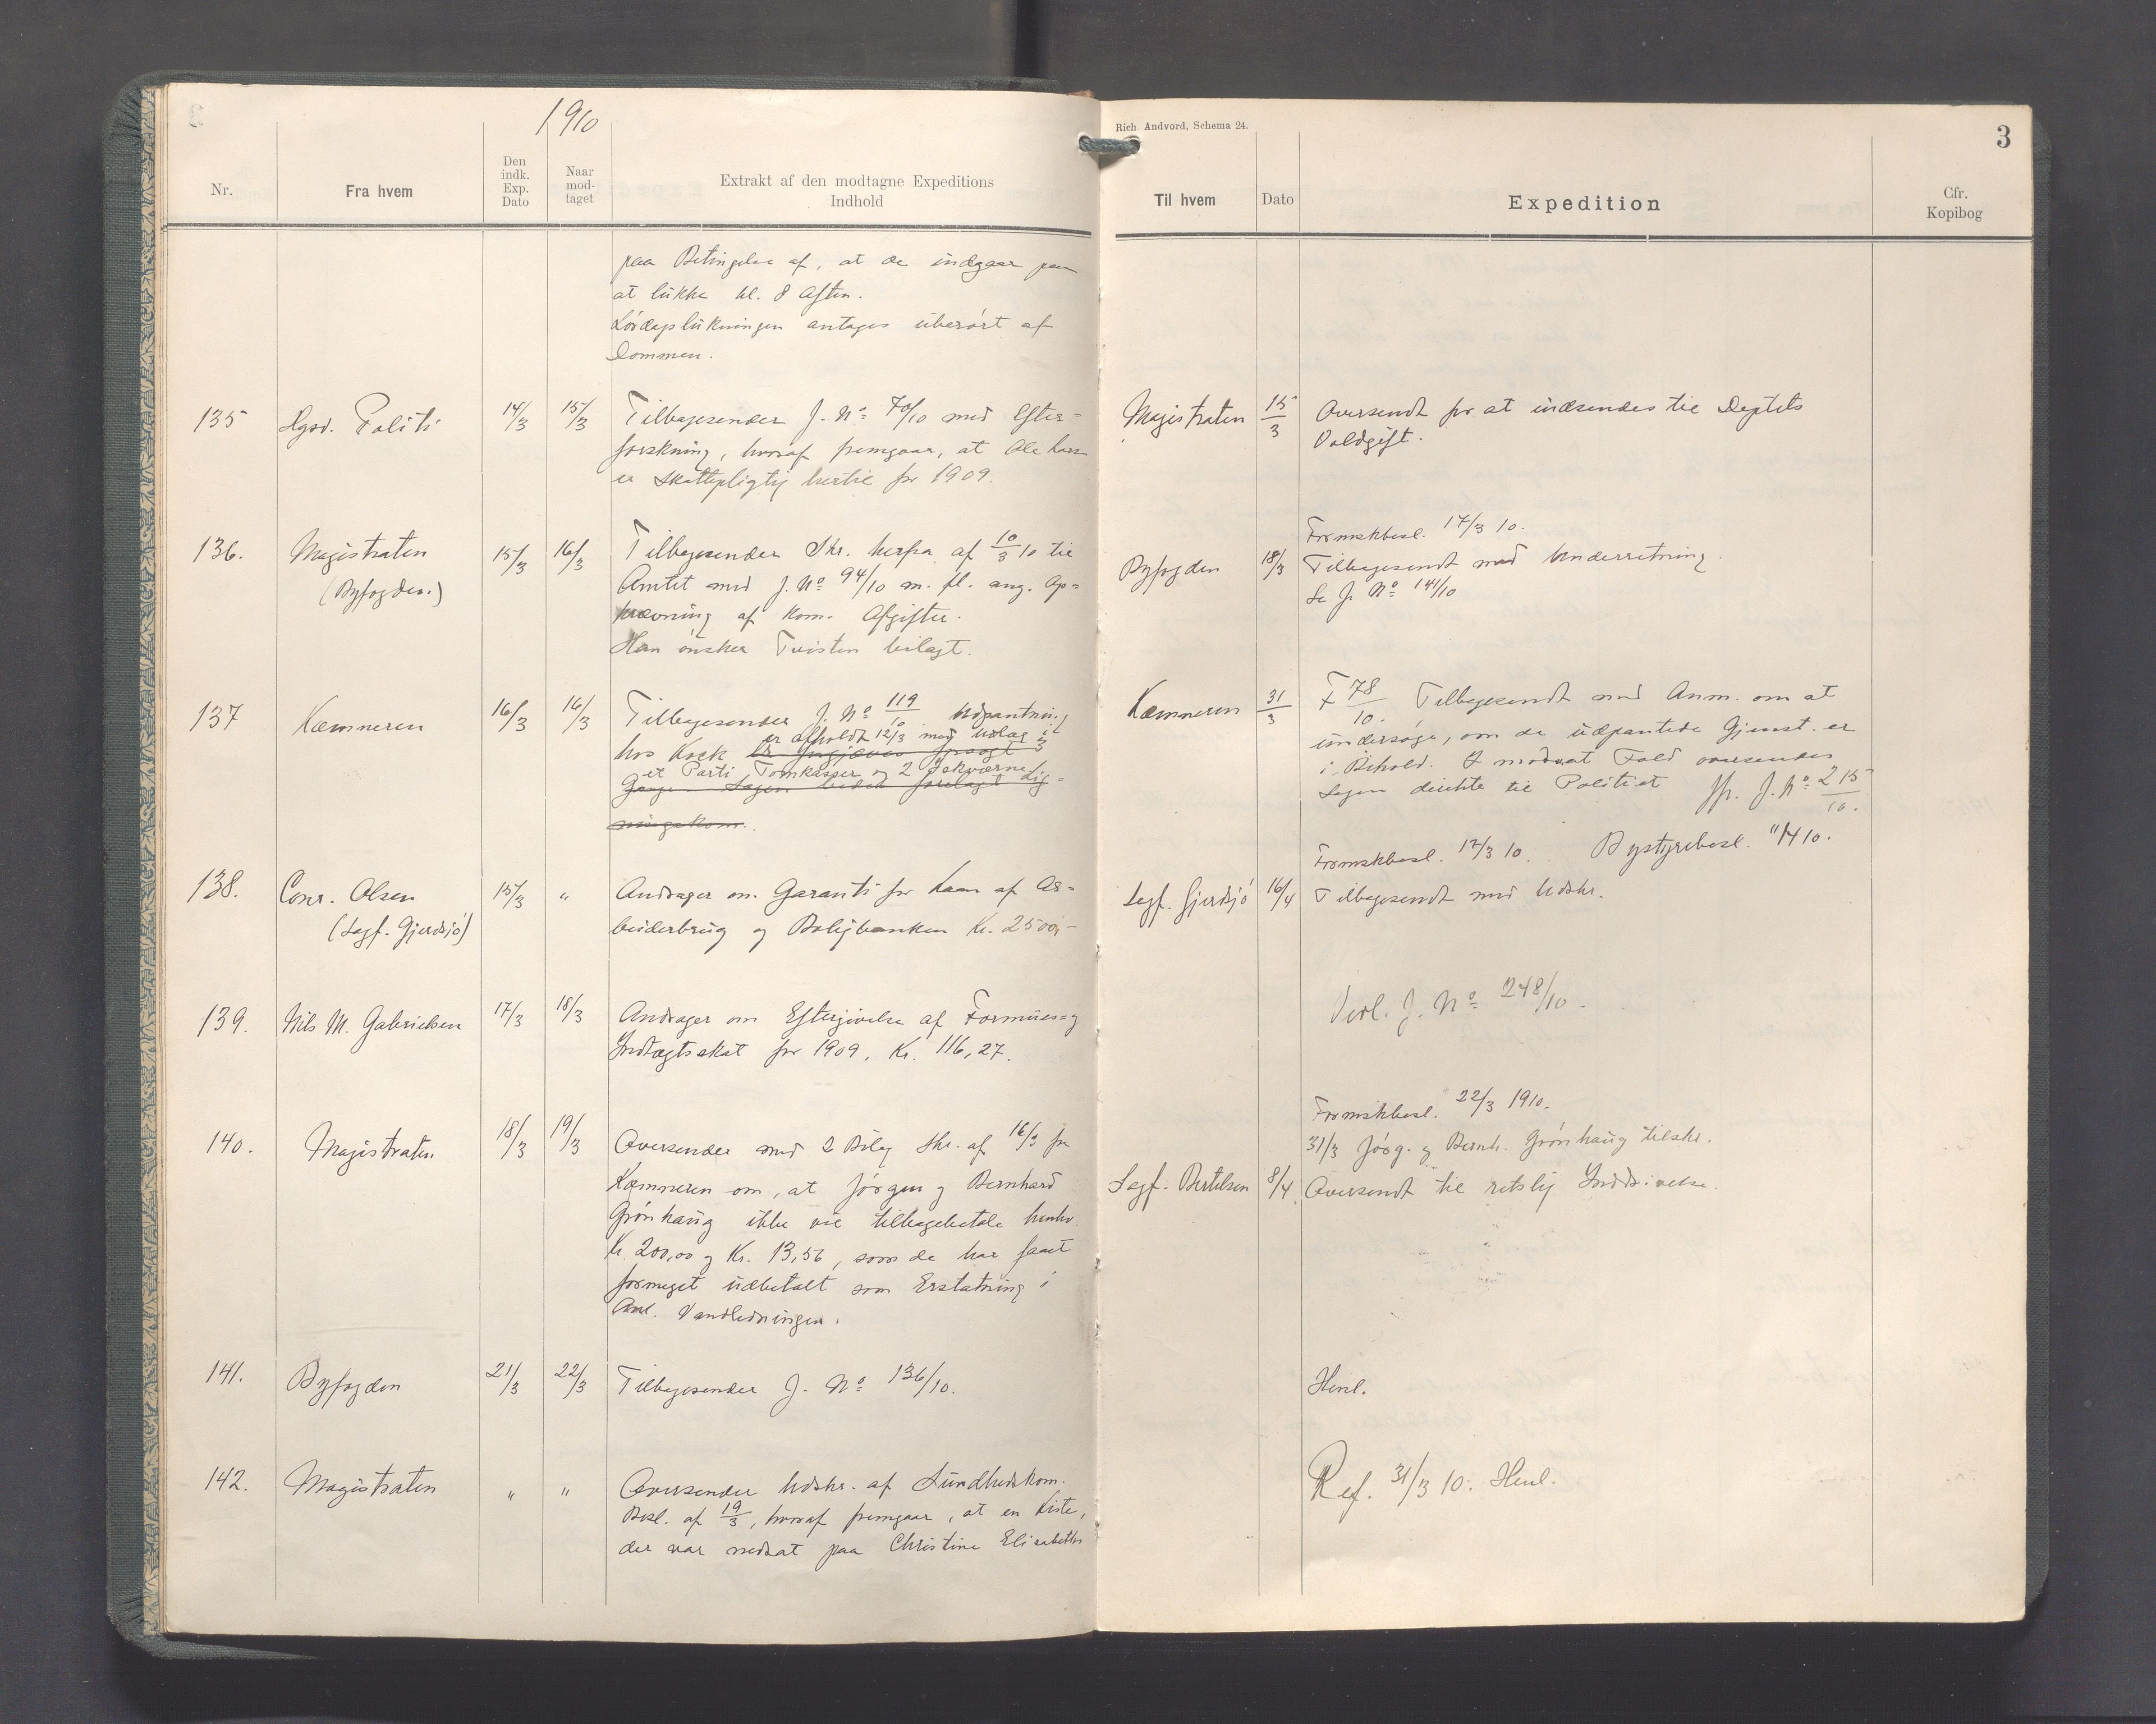 1910
Nr.
Fra hvem
Den indk. Exp. Dato
Naar mod-taget
Extrakt af den modtagne Expeditions Indhold
paa Betingelse af, at de indgaar paa
at lukke kl. 8 Aften.
Lørdagslukningen antages uberørt af
Dommen.
135
Hgsd. Politi
14/3
15/3
Tilbagesender J. No 70/10 med Efter=
forskning, hvoraf fremgaar, at Ole
er skattepligtig hertil for 1909.
136.
Magistraten
(Byfogden.)
15/3
16/3
Tilbagesender Skr. herfra af 10/3 10 til
Amtet med J. No 94/10 m. fl. ang. Op=
krævning af Kom. Afgifter.
Han ønsker Tvisten bilagt.
137
Kæmneren
16/3
16/3
Tilbagesender J. No 119/10. Udpantning
er afholdt 12/3 med Udlæg i
hos Kock
et Parti Tomkasser og 2
Sagen forelagt Lig=
ningskom.
138.
Conr. Olsen
(Sagf. Gjerdsjø)
15/3
"
Andrager om Garanti for Laan af Ar=
beiderbrug og Boligbanken Kr. 2500,-
139.
Nils M. Gabrielsen
17/3
18/3
Andrager om Eftergivelse af Formues= og
Indtægtsskat for 1909, Kr. 116,27.
140.
Magistraten
18/3
19/3
Oversender med 2 Bilag Skr. af 16/3 fra
Kæmneren om, at Jørgen og Bernhard
Grønhaug ikke vil tilbagebetale henhv.
Kr. 200,00 og Kr. 13,56, som de har faaet
formeget udbetalt som Erstatning i
Anl. Vandledningen.
141.
Byfogden
21/3
22/3
Tilbagesender J. No 136/10.
142.
Magistraten
"
"
Oversender Udskr. af Sundhedskom.
Besl. af 19/3, hvoraf fremgaar, at en Kiste,
der var nedsat paa Christine Elisabeths
Rich. Andvord, Schema 24.
3
Til hvem
Dato
Expedition
Cfr. Kopibog
Magistraten
15/3
Oversendt for at indsendes til Deptets
Voldgift.
Formskbesl. 17/3 10.
Byfogden
18/3
Tilbagesendt med Underretning.
Se J. No 141/10
Kæmneren
31/3
F 78/10. Tilbagesendt med Anm. om at
undersøge, om de udpantede Gjenst. er
i Behold. I modsat Fald oversendes
Sagen direkte til Politiet Jfr. J. No 215/10.
Formskbesl. 17/3 10. Bystyrebesl. 11/4 10.
Sagf. Gjerdsjø
16/4
Tilbagesendt med Udskr.
Vedl. J. No 248/10.
Formskbesl. 22/3 1910.
31/3 Jørg. og Bernh. Grønhaug tilskr.
Sagf. Bertelsen
8/4
Oversendt til retslig Inddrivelse.
Henl.
Ref. 31/3 10. Henl.